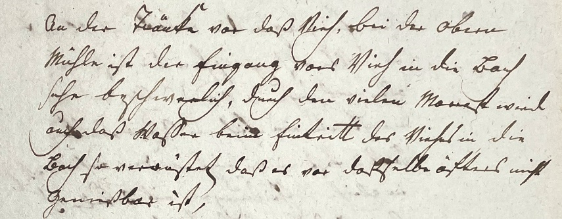 An der Tränke vor daß Vieh, bei der obern
Mühle ist der Eingang vors Vieh in die Bach
sehr beschwerlich, durch den vielen Morast wird
auch daß Wasser beim Eintritt des Viehs in die
Bach so verwüstet, daß es vor dasselbe öfters nicht
Genießbar ist,